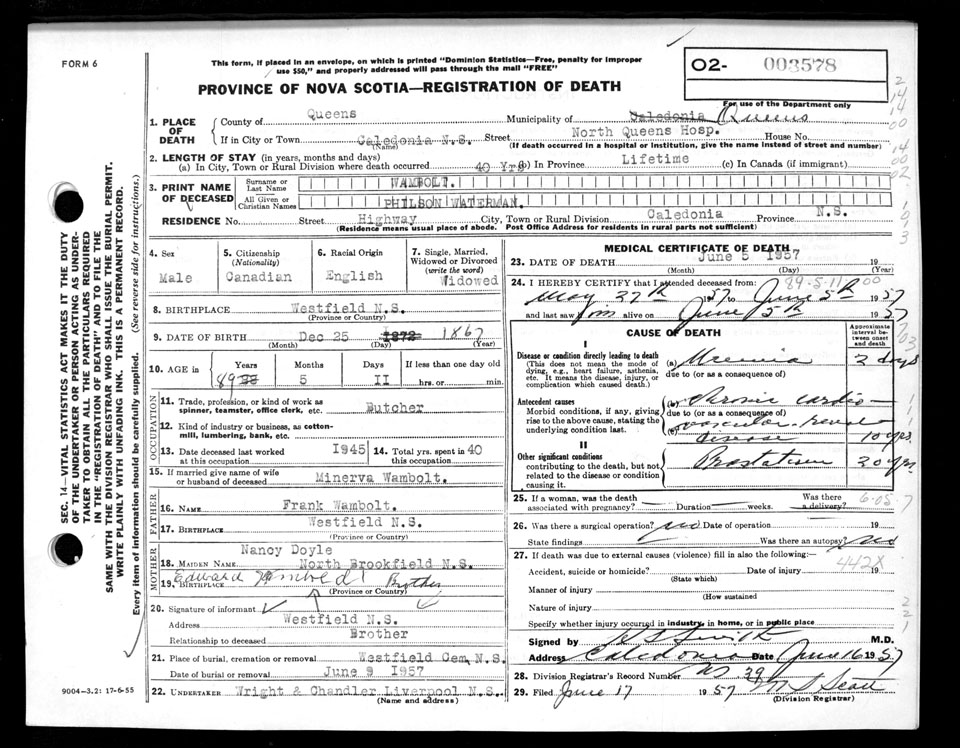 FORM 6
This form, if placed in an envelope, on which is printed "Dominion Statistics—Free, penalty for improper
use $50," and properly addressed will pass through the mail "FREE"
O2- 003578
For use of the Department only
PROVINCE OF NOVA SCOTIA—REGISTRATION OF DEATH
1. PLACE OF DEATH
County of Queens Municipality of Caledonia Queens
If in City or Town Caledonia N.S. Street North Queens Hosp. House No.
(Name) (If death occurred in a hospital or institution, give the name instead of street and number)
2. LENGTH OF STAY (in years, months and days)
(a) In City, Town or Rural Division where death occurred 40 Yrs (b) In Province Lifetime (c) In Canada (if immigrant)
3. PRINT NAME OF DECEASED
Surname or Last Name WAMBOLT.
All Given or Christian Names PHILSON WATERMAN.
RESIDENCE No. Street Highway City, Town or Rural Division Caledonia Province N.S.
(Residence means usual place of abode. Post Office Address for residents in rural parts not sufficient)
4. Sex
Male
5. Citizenship
(Nationality)
Canadian
6. Racial Origin
English
7. Single, Married,
Widowed or Divorced
(write the word)
Widowed
8. BIRTHPLACE Westfield N.S.
(Province or Country)
9. DATE OF BIRTH Dec 25 1872 1867
(Month) (Day) (Year)
10. AGE in
Years Months Days If less than one day old
89 5 II hrs. or min.
OCCUPATION
11. Trade, profession, or kind of work as
spinner, teamster, office clerk, etc. Butcher
12. Kind of industry or business, as cotton-
mill, lumbering, bank, etc.
13. Date deceased last worked
at this occupation I945
14. Total yrs. spent in
this occupation 40
15. If married give name of wife
or husband of deceased Minerva Wambolt.
FATHER
16. NAME Frank Wambolt.
17. BIRTHPLACE Westfield N.S.
(Province or Country)
MOTHER
Nancy Doyle
18. MAIDEN NAME North Brookfield N.S.
19. BIRTHPLACE Edward Wamboldt Brother
(Province or Country)
20. Signature of informant
Address Westfield N.S.
Relationship to deceased Brother
21. Place of burial, cremation or removal Westfield Cem, N.S.
Date of burial or removal June 9 I957
22. UNDERTAKER Wright & Chandler Liverpool N.S.
(Name and address)
MEDICAL CERTIFICATE OF DEATH
23. DATE OF DEATH June 5 I957 19
(Month) (Day) (Year)
89-5-11 00
24. I HEREBY CERTIFY that I attended deceased from:
May 27th 1957 to June 5th 1957
and last saw him alive on June 5th 1957
CAUSE OF DEATH
Approximate
interval be-
tween onset
and death
I
Disease or condition directly leading to death
(This does not mean the mode of
dying, e.g., heart failure, asthenia,
etc. It means the disease, injury, or
complication which caused death.)
(a) Uremia 2 days
due to (or as a consequence of)
Antecedent causes
Morbid conditions, if any, giving
rise to the above cause, stating the
underlying condition last.
(b) Chronic cardio-
due to (or as a consequence of)
(c) vascular-renal
disease 10 yrs.
II
Other significant conditions
contributing to the death, but not
related to the disease or condition
causing it.
Prostatism 20 yrs
25. If a woman, was the death
associated with pregnancy? Duration weeks. Was there
a delivery?
26. Was there a surgical operation? no Date of operation 19
State findings Was there an autopsy? no
27. If death was due to external causes (violence) fill in also the following:—
442X
Accident, suicide or homicide? Date of injury 19
(State which)
Manner of injury
(How sustained
Nature of injury
Specify whether injury occurred in industry, in home, or in public place
Signed by H S Smith M.D.
Address Caledonia Date June 16 1957
28. Division Registrar's Record Number 39
29. Filed June 17 1957
(Division Registrar)
SEC. 14—VITAL STATISTICS ACT MAKES IT THE DUTY
OF THE UNDERTAKER OR PERSON ACTING AS UNDER-
TAKER TO OBTAIN ALL THE PARTICULARS REQUIRED
IN THE "REGISTRATION OF DEATH" AND TO FILE THE
SAME WITH THE DIVISION REGISTRAR WHO SHALL ISSUE THE BURIAL PERMIT.
WRITE PLAINLY WITH UNFADING INK. THIS IS A PERMANENT RECORD.
Every item of information should be carefully supplied. (See reverse side for instructions.)
9004—3.2: 17-6-55